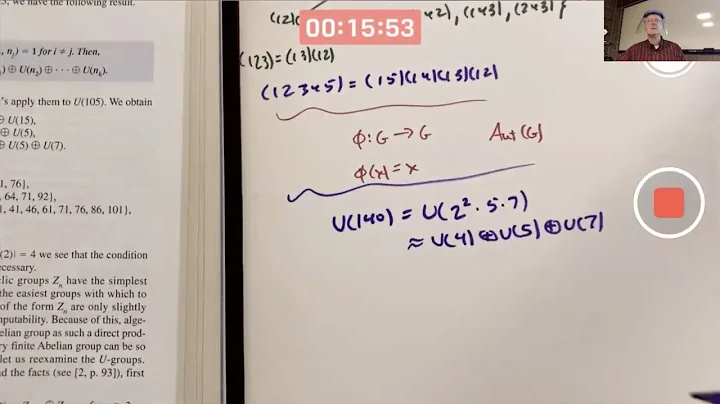 , we have the following result.
, nⱼ) = 1 for i ≠ j. Then,
) ⊕ U(n₂) ⊕ ··· ⊕ U(nₖ).
's apply them to U(105). We obtain
⊕ U(15),
⊕ U(5),
⊕ U(5) ⊕ U(7).
1, 76},
, 64, 71, 92},
, 41, 46, 61, 71, 76, 86, 101},
(2)| = 4 we see that the condition
ecessary.
clic groups Zₙ have the simplest
the easiest groups with which to
of the form Zₙ are only slightly
mputability. Because of this, alge-
elian group as such a direct prod-
ry finite Abelian group can be so
let us reexamine the U-groups.
d the facts (see [2, p. 93]), first
00:15:53
(123) = (13)(12)
(12345) = (15)(14)(13)(12)
Φ: G → G Aut(G)
Φ(x) = x
U(140) = U(2² · 5 · 7)
≈ U(4) ⊕ U(5) ⊕ U(7)